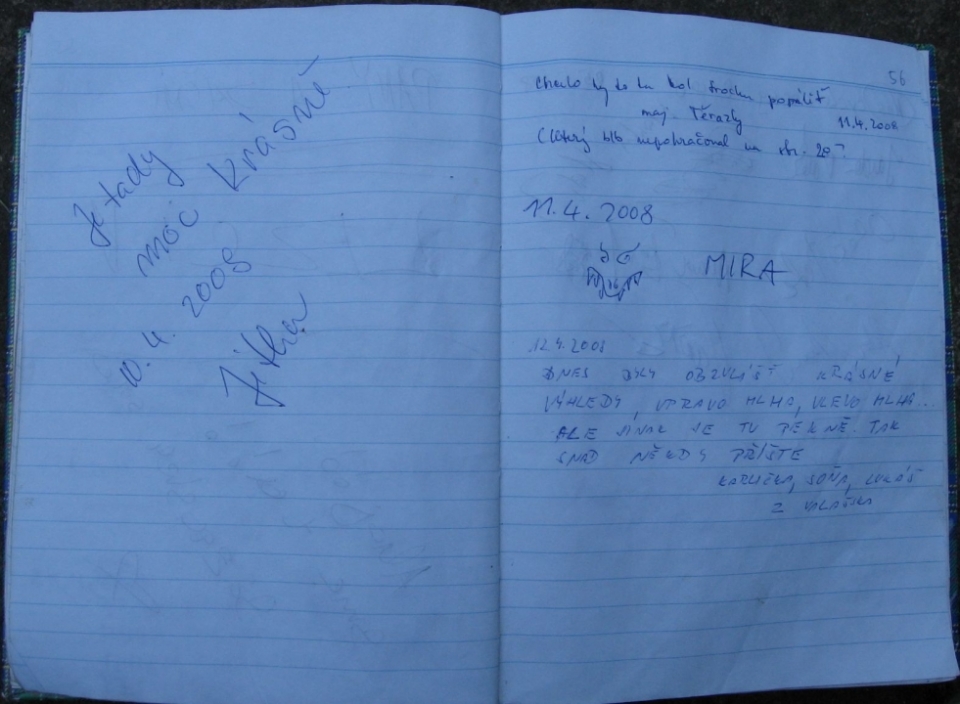 Je tady
moc krásně
10. 4. 2008
Jitka
56
Chtělo by to tu kol trochu popálit
maj.
11.4.2008
(Který blb nepokračoval na str. 20?
11.4. 2008
MIRA
12.4.2008
DNES BYLY OBZVLÁŠŤ KRÁSNÉ
VÝHLEDY, VPRAVO MLHA, VLEVO MLHA...
ALE JINAK JE TU PĚKNĚ. TAK
SNAD NĚKDY PŘÍŠTE
KATUŠKA, SOŇA, LUKÁŠ
Z VALAŠSKA